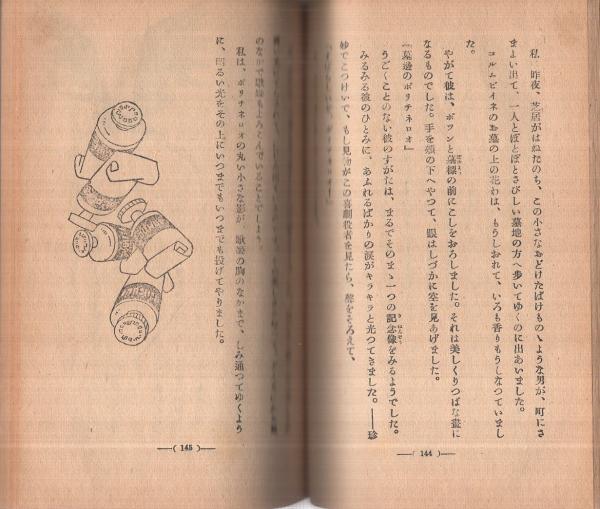 私は昨夜、芝居がはねたのち、この小さなおどけたばけものゝような男が、町にさ
まよい出て、一人とぼとぼとさびしい墓地の方へ歩いてゆくのに出あいました。
コルムビイネのお墓の上の花わは、もうしおれて、いろも香りもうしなつていまし
た。
やがて彼は、ポツンと墓標の前にこしをおろしました。それは美しくりつぱな畫に
なるものでした。手を顎の下へやつて、眼はしづかに空を見あげました。
「墓邊のポリチネロオ」
うごくことのない彼のすがたは、まるでそのまゝ一つの記念像をみるようでした。
みるみる彼のひとみに、あふれるばかりの涙がキラキラと光つてきました。――珍
妙でこつけいで、もし見物がこの喜劇役者を見たら、聲をそろえて、
―( 144 )―
のなかで
もよろこんでいることでしよう。
私は、ポリチネロオの丸い小さな影が、
の胸のなかまで、しみ通つてゆくよう
に、明るい光をその上にいつまでもいつまでも投げてやりました。
―( 145 )―